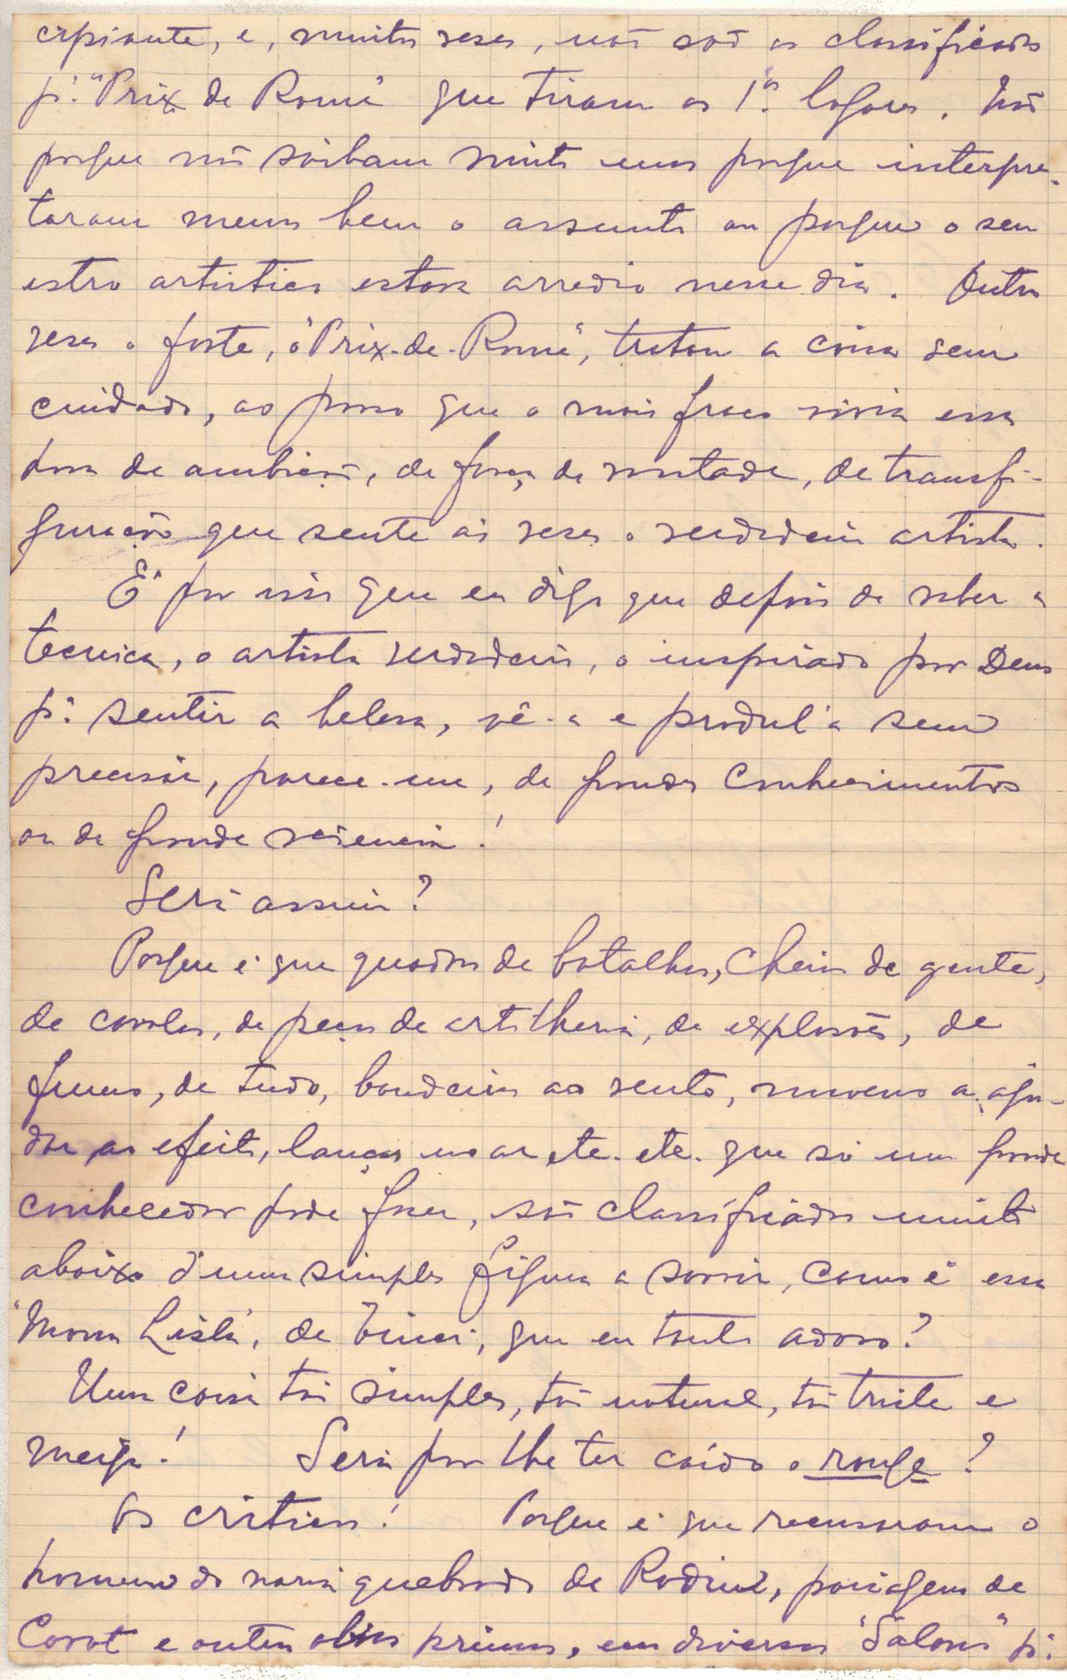 cipiante, e, muitas vezes, não são os classificados
pª. "Prix de Rome" que tiram os 1.os logares. Não
porque não saibam muito mas porque interpre-
taram menos bem o assunto ou porque o seu
estro artistico estava arredio nesse dia. Outras
vezes o forte, o "Prix-de-Rome", tratou a coisa sem
cuidado, ao passo que o mais fraco vivia essa
hora de ambição, de força de vontade, de transfi-
guração que sente ás vezes o verdadeiro artista.
É por isso que eu digo que depois de saber a
tecnica, o artista verdadeiro, o inspirado por Deus
pª. sentir a beleza, vê-a e produl-a sem
precisar, parece-me, de grandes conhecimentos
ou de grande sciencia!
Será assim?
Porque é que quadros de batalhas, cheios de gente,
de cavalos, de peças de artilheria, de explosões, de
fumo, de tudo, bandeiras ao vento, nuvens a aju-
dar os efeitos, lanças no ar, etc. etc. que só um grande
conhecedor pode fazer, são classificados muito
abaixo d'uma simples figura a sorrir, como é essa
"Mona Lisa", de Vinci, que eu tanto adoro?
Uma coisa tão simples, tão natural, tão triste e
meiga! Será por lhe ter caído o rouge?
Os criticos! Porque é que recusaram o
homem do nariz quebrado de Rodin, paisagens de
Corot e outras obras primas, em diversos "Salons" pª.